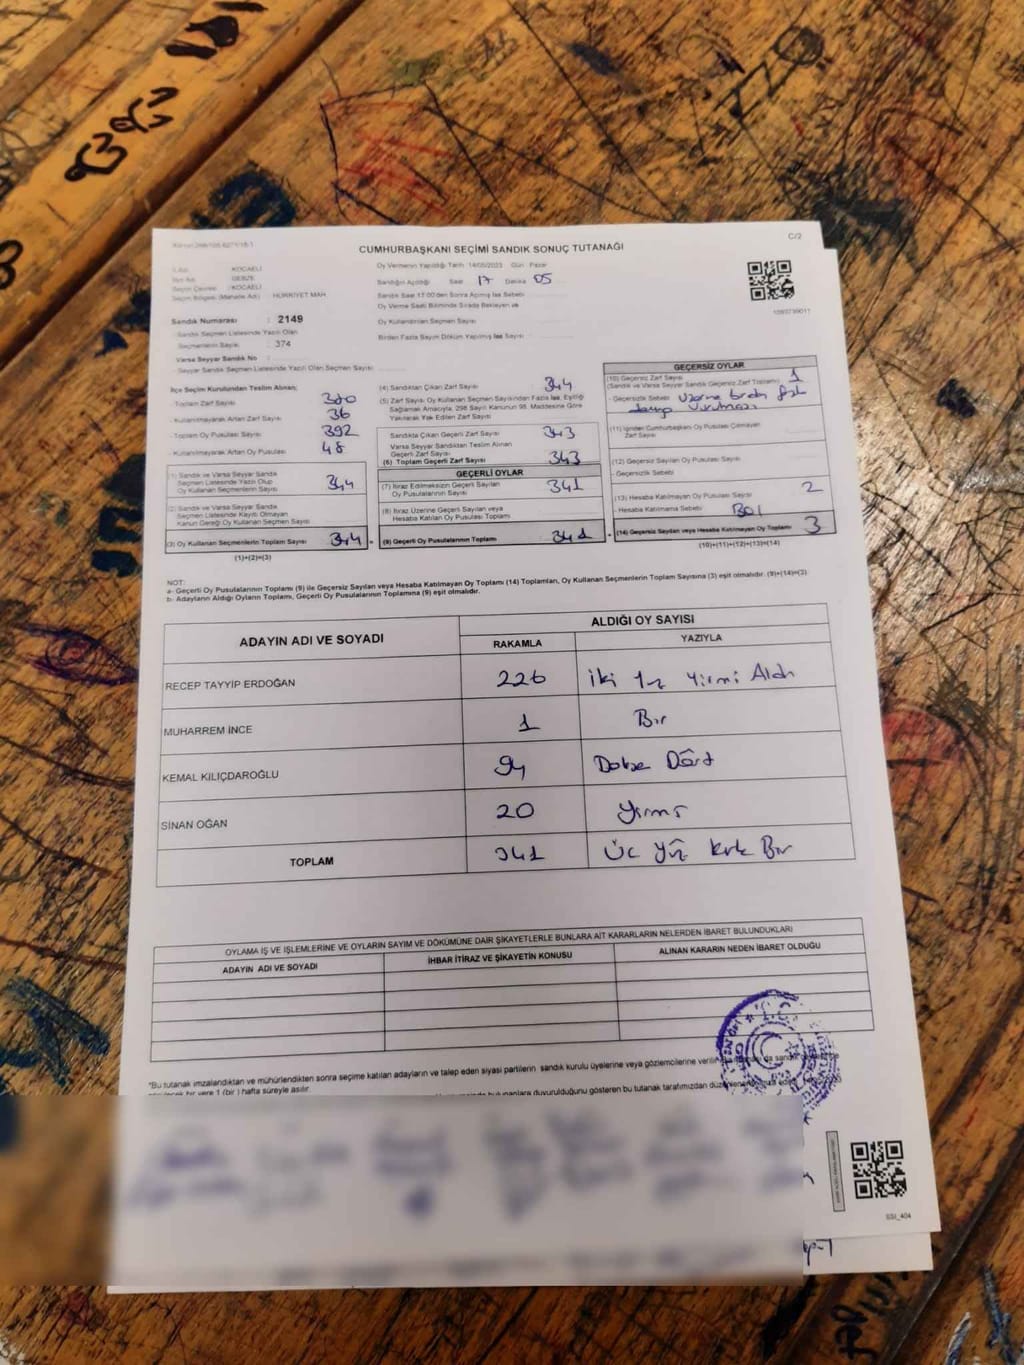 C/2
CUMHURBAŞKANI SEÇİMİ SANDIK SONUÇ TUTANAĞI
İl Adı : KOCAELİ
İlçe Adı : GEBZE
Seçim Çevresi : KOCAELİ
Seçim Bölgesi (Mahalle Adı) : HÜRRİYET MAH
Oy Vermenin Yapıldığı Tarih: 14/05/2023 Gün : Pazar
Sandığın Açıldığı Saat 17 Dakika 05
Sandık Saat 17:00'den Sonra Açılmış İse Sebebi
Oy Verme Saati Bitiminde Sırada Bekleyen ve
Oy Kullandırılan Seçmen Sayısı
Birden Fazla Sayım Döküm Yapılmış İse Sayısı
Sandık Numarası : 2149
Sandık Seçmen Listesinde Yazılı Olan
Seçmenlerin Sayısı : 374
Varsa Seyyar Sandık No :
Seyyar Sandık Seçmen Listesinde Yazılı Olan Seçmen Sayısı
İlçe Seçim Kurulundan Teslim Alınan;
- Toplam Zarf Sayısı 380
- Kullanılmayarak Artan Zarf Sayısı 36
- Toplam Oy Pusulası Sayısı 392
- Kullanılmayarak Artan Oy Pusulası 48
(1) Sandık ve Varsa Seyyar Sandık
Seçmen Listesinde Yazılı Olup
Oy Kullanan Seçmenlerin Sayısı 344
(2) Sandık ve Varsa Seyyar Sandık
Seçmen Listesinde Kayıtlı Olmayan
Kanun Gereği Oy Kullanan Seçmen Sayısı
(3) Oy Kullanan Seçmenlerin Toplam Sayısı 344 =
(1)+(2)=(3)
(4) Sandıktan Çıkan Zarf Sayısı 344
(5) Zarf Sayısı Oy Kullanan Seçmen Sayısından Fazla İse, Eşitliği
Sağlamak Amacıyla, 298 Sayılı Kanunun 98. Maddesine Göre
Yakılarak Yok Edilen Zarf Sayısı
Sandıkta Çıkan Geçerli Zarf Sayısı 343
Varsa Seyyar Sandıktan Teslim Alınan
Geçerli Zarf Sayısı
(6) Toplam Geçerli Zarf Sayısı 343
GEÇERLİ OYLAR
(7) İtiraz Edilmeksizin Geçerli Sayılan
Oy Pusulalarının Sayısı 341
(8) İtiraz Üzerine Geçerli Sayılan veya
Hesaba Katılan Oy Pusulası Toplamı
(9) Geçerli Oy Pusulalarının Toplamı 341 +
GEÇERSİZ OYLAR
(10) Geçersiz Zarf Sayısı 1
(Sandık ve Varsa Seyyar Sandık Geçersiz Zarf Toplamı)
- Geçersizlik Sebebi
(11) İçinden Cumhurbaşkanı Oy Pusulası Çıkmayan
Zarf Sayısı
(12) Geçersiz Sayılan Oy Pusulası Sayısı
- Geçersizlik Sebebi
(13) Hesaba Katılmayan Oy Pusulası Sayısı 2
- Hesaba Katılmama Sebebi
(14) Geçersiz Sayılan veya Hesaba Katılmayan Oy Toplamı 3
(10)+(11)+(12)+(13)=(14)
NOT:
a- Geçerli Oy Pusulalarının Toplamı (9) ile Geçersiz Sayılan veya Hesaba Katılmayan Oy Toplamı (14) Toplamları, Oy Kullanan Seçmenlerin Toplam Sayısına (3) eşit olmalıdır. (9)+(14)=(3)
b- Adayların Aldığı Oyların Toplamı, Geçerli Oy Pusulalarının Toplamına (9) eşit olmalıdır.
ADAYIN ADI VE SOYADI ALDIĞI OY SAYISI
RAKAMLA YAZIYLA
RECEP TAYYİP ERDOĞAN 226 İki Yüz Yirmi Altı
MUHARREM İNCE 1 Bir
KEMAL KILIÇDAROĞLU 94 Doksan Dört
SİNAN OĞAN 20 Yirmi
TOPLAM 341 Üç Yüz Kırk Bir
OYLAMA İŞ VE İŞLEMLERİNE VE OYLARIN SAYIM VE DÖKÜMÜNE DAİR ŞİKAYETLERLE BUNLARA AİT KARARLARIN NELERDEN İBARET BULUNDUKLARI
ADAYIN ADI VE SOYADI İHBAR İTİRAZ VE ŞİKAYETİN KONUSU ALINAN KARARIN NEDEN İBARET OLDUĞU
*Bu tutanak imzalandıktan ve mühürlendikten sonra seçime katılan adayların ve talep eden siyasi partilerin sandık kurulu üyelerine veya gözlemcilerine
bir yere 1 (bir) hafta süreyle asılır.
duyurulduğunu gösteren bu tutanak tarafımızdan
T.C.
SSI_404